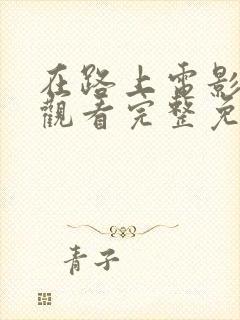 在路上電影
觀看完整免
青子